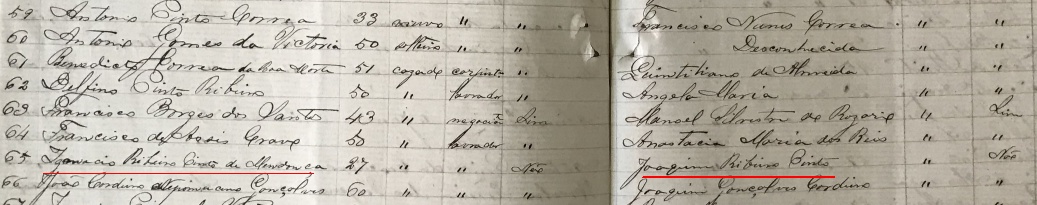 59 Antonio Pinto Correa 33 viuvo " " " Francisco Nunes Correa " "
60 Antonio Gomes da Victoria 50 solteiro " " Desconhecida " "
61 Benedicto Correa da Boa Morte 51 casado " Quintiliano de Almeida " "
62 Delfino Pinto Ribeiro 50 " lavrador " Angela Maria " "
63 Francisco Borges dos Santos 43 " negociante Sim Manoel Silvestre do Rozario " Sim
64 Francisco de Assis Grave 50 " lavrador " Anastacia Maria dos Reis " "
65 Ignacio Ribeiro Pinto de Mendonça 27 " " Não Joaquim Ribeiro Pinto " Não
66 João Cordeiro Nepomuceno Gonçalves 60 " " " Joaquim Gonçalves Cordeiro " "
67